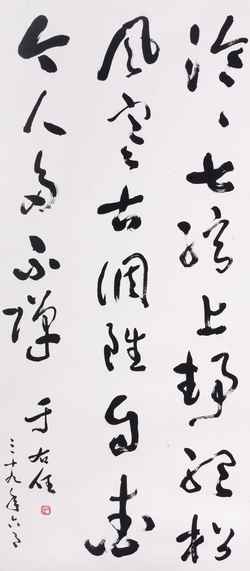 泠々七絃上靜聽松
風寒古調雖自愛
今人多不彈
于右任
三十九年六月